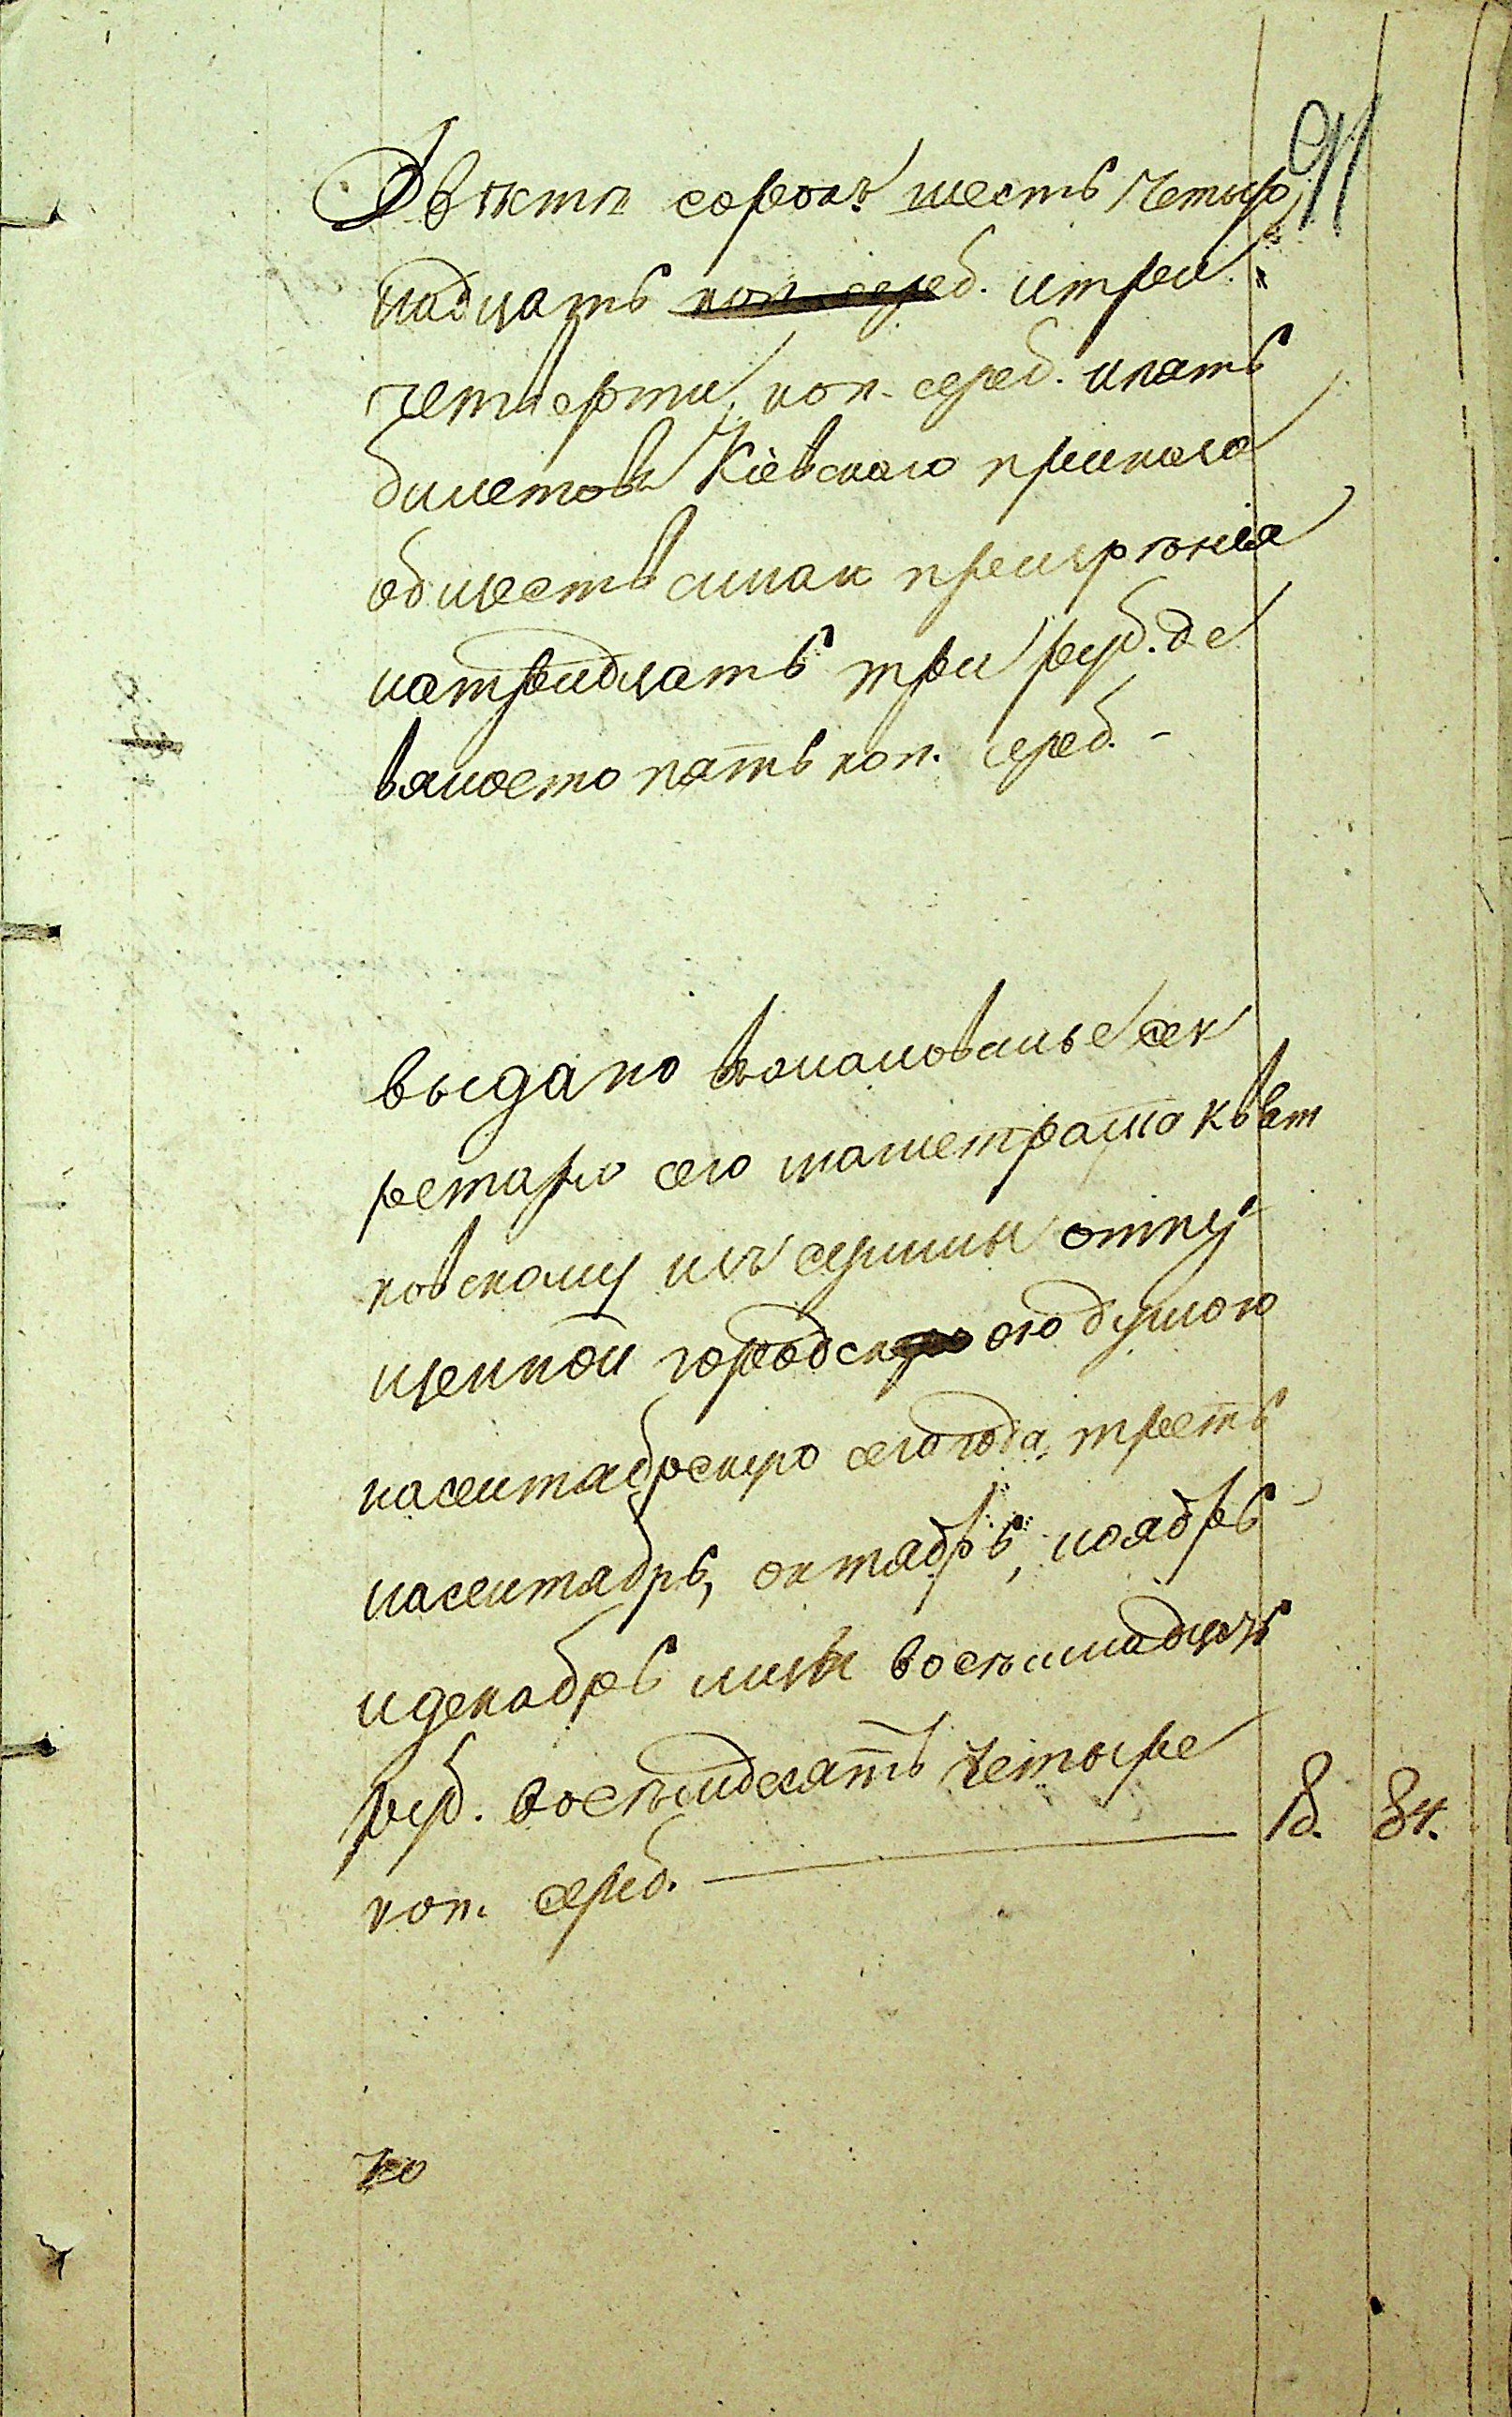 91
Двѣсти сорокъ шесть четыр
надцать коп. сереб. итри
четверти, коп. сереб. ипять
билетовъ Кіевскаго приказа
общественнаго призрѣнія
натридцать три руб. де
вяносто пять коп. сереб. -
выдано вжалованье сек
ретарю сего магистрата Квят
ковскому изъ суммы отпу
щенной городскою думою
насентябрскую сего года треть
насентябрь, октябрь, ноябрь
идекабрь мцы восемнадцать
руб. восемдесятъ четыре
коп. сереб. — 18. 84.